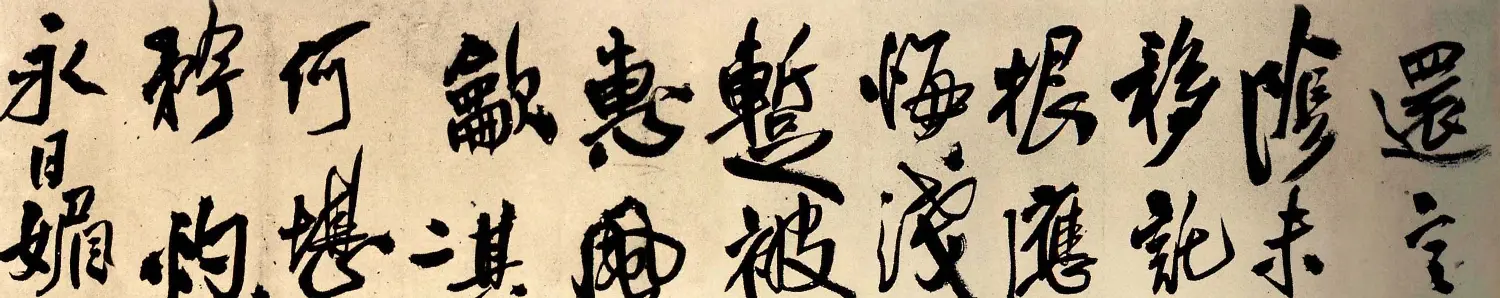 還
陰未
移託
根應
悔淺
蹔被
惠風
龡淇
何堪
矜灼
永日媚